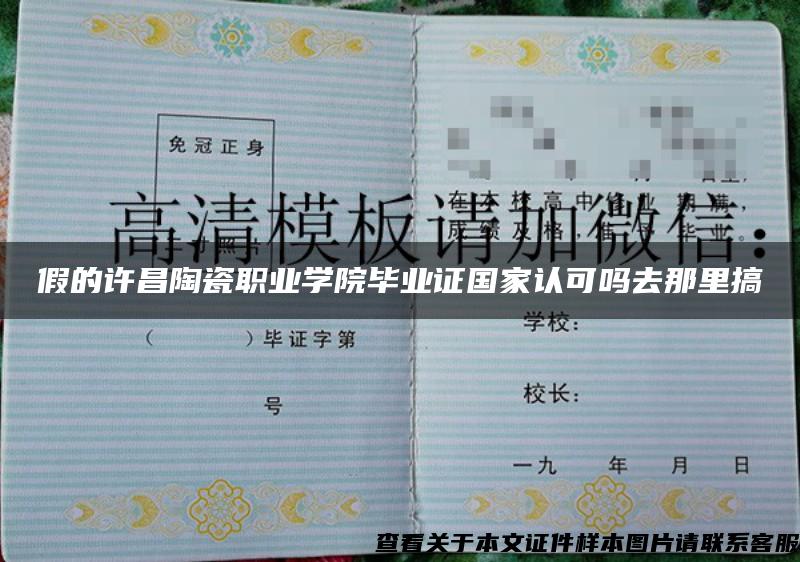 免冠正身
二寸照片
在本校高中修业期满,
成绩及格,准予毕业。
高清模板请加微信:
假的许昌陶瓷职业学院毕业证国家认可吗去那里搞
( )毕证字第
号
学校:
校长:
一九 年 月 日
查看关于本文证件样本图片请联系客服